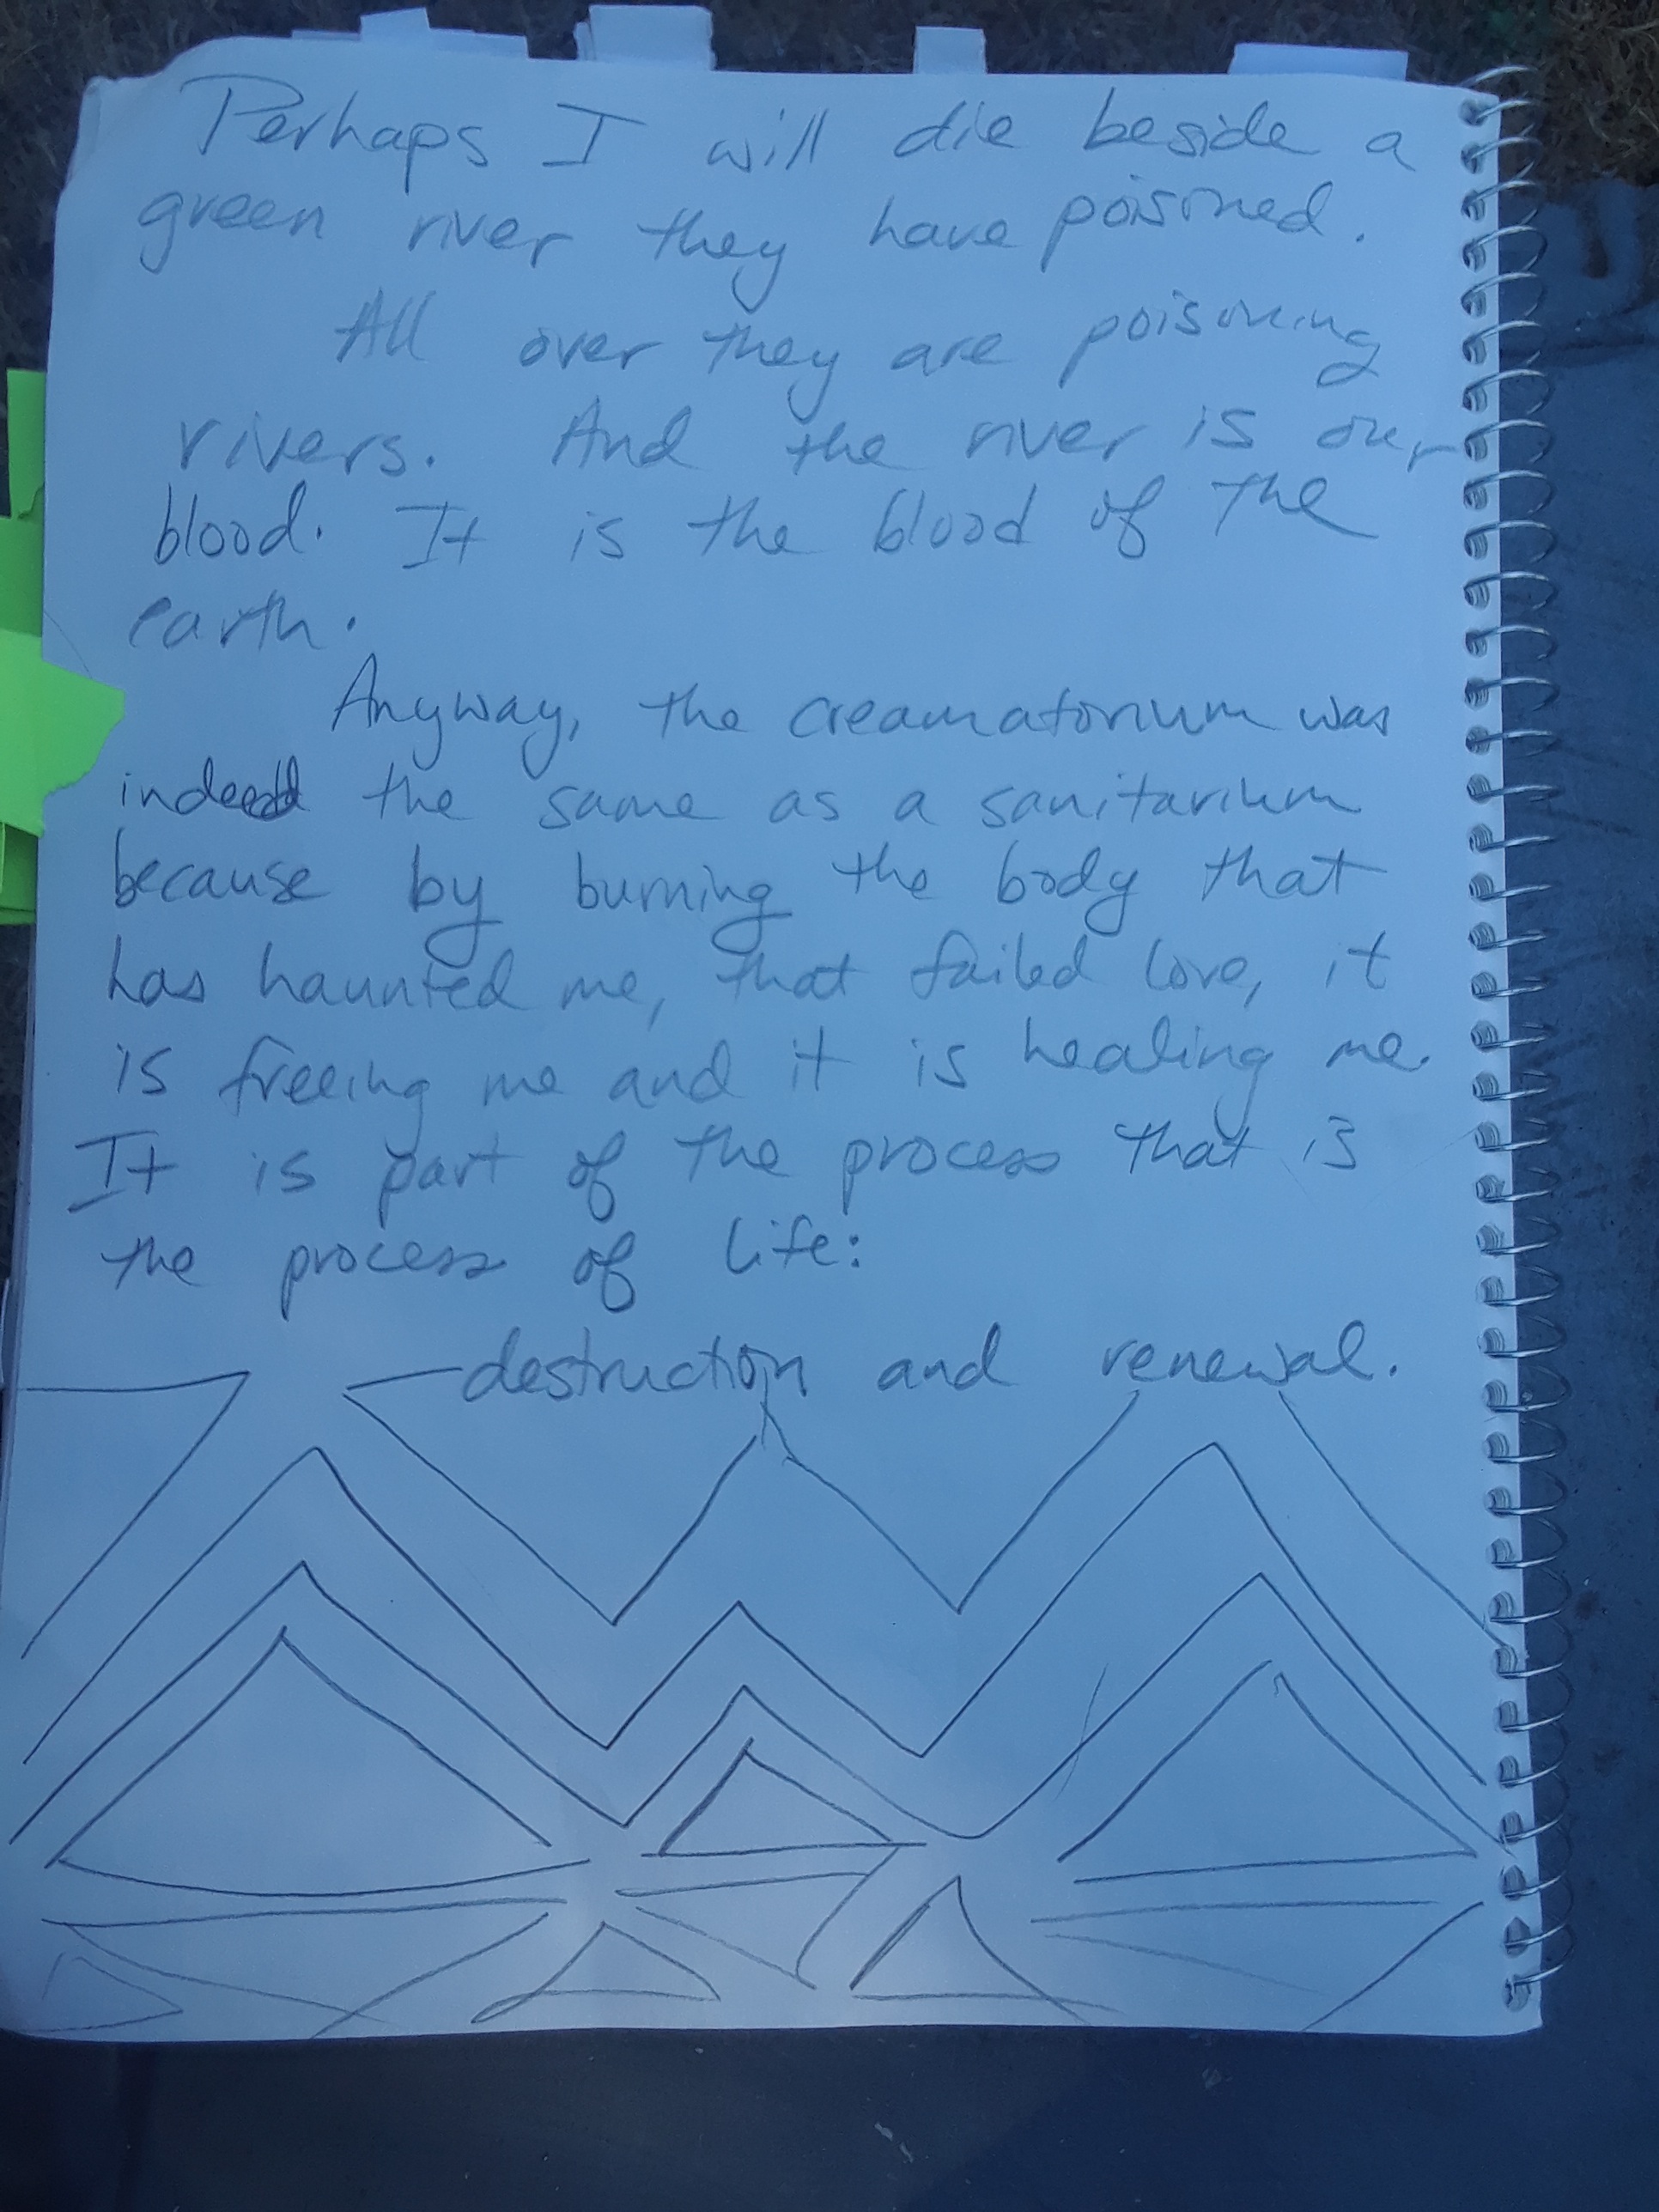 Perhaps I will die beside a
green river they have poisoned.
All over they are poisoning
rivers. And the river is our
blood. It is the blood of the
earth.
Anyway, the creamatorium was
indeed the same as a sanitarium
because by burning the body that
has haunted me, that failed love, it
is freeing me and it is healing me.
It is part of the process that is
the process of life:
destruction and renewal.